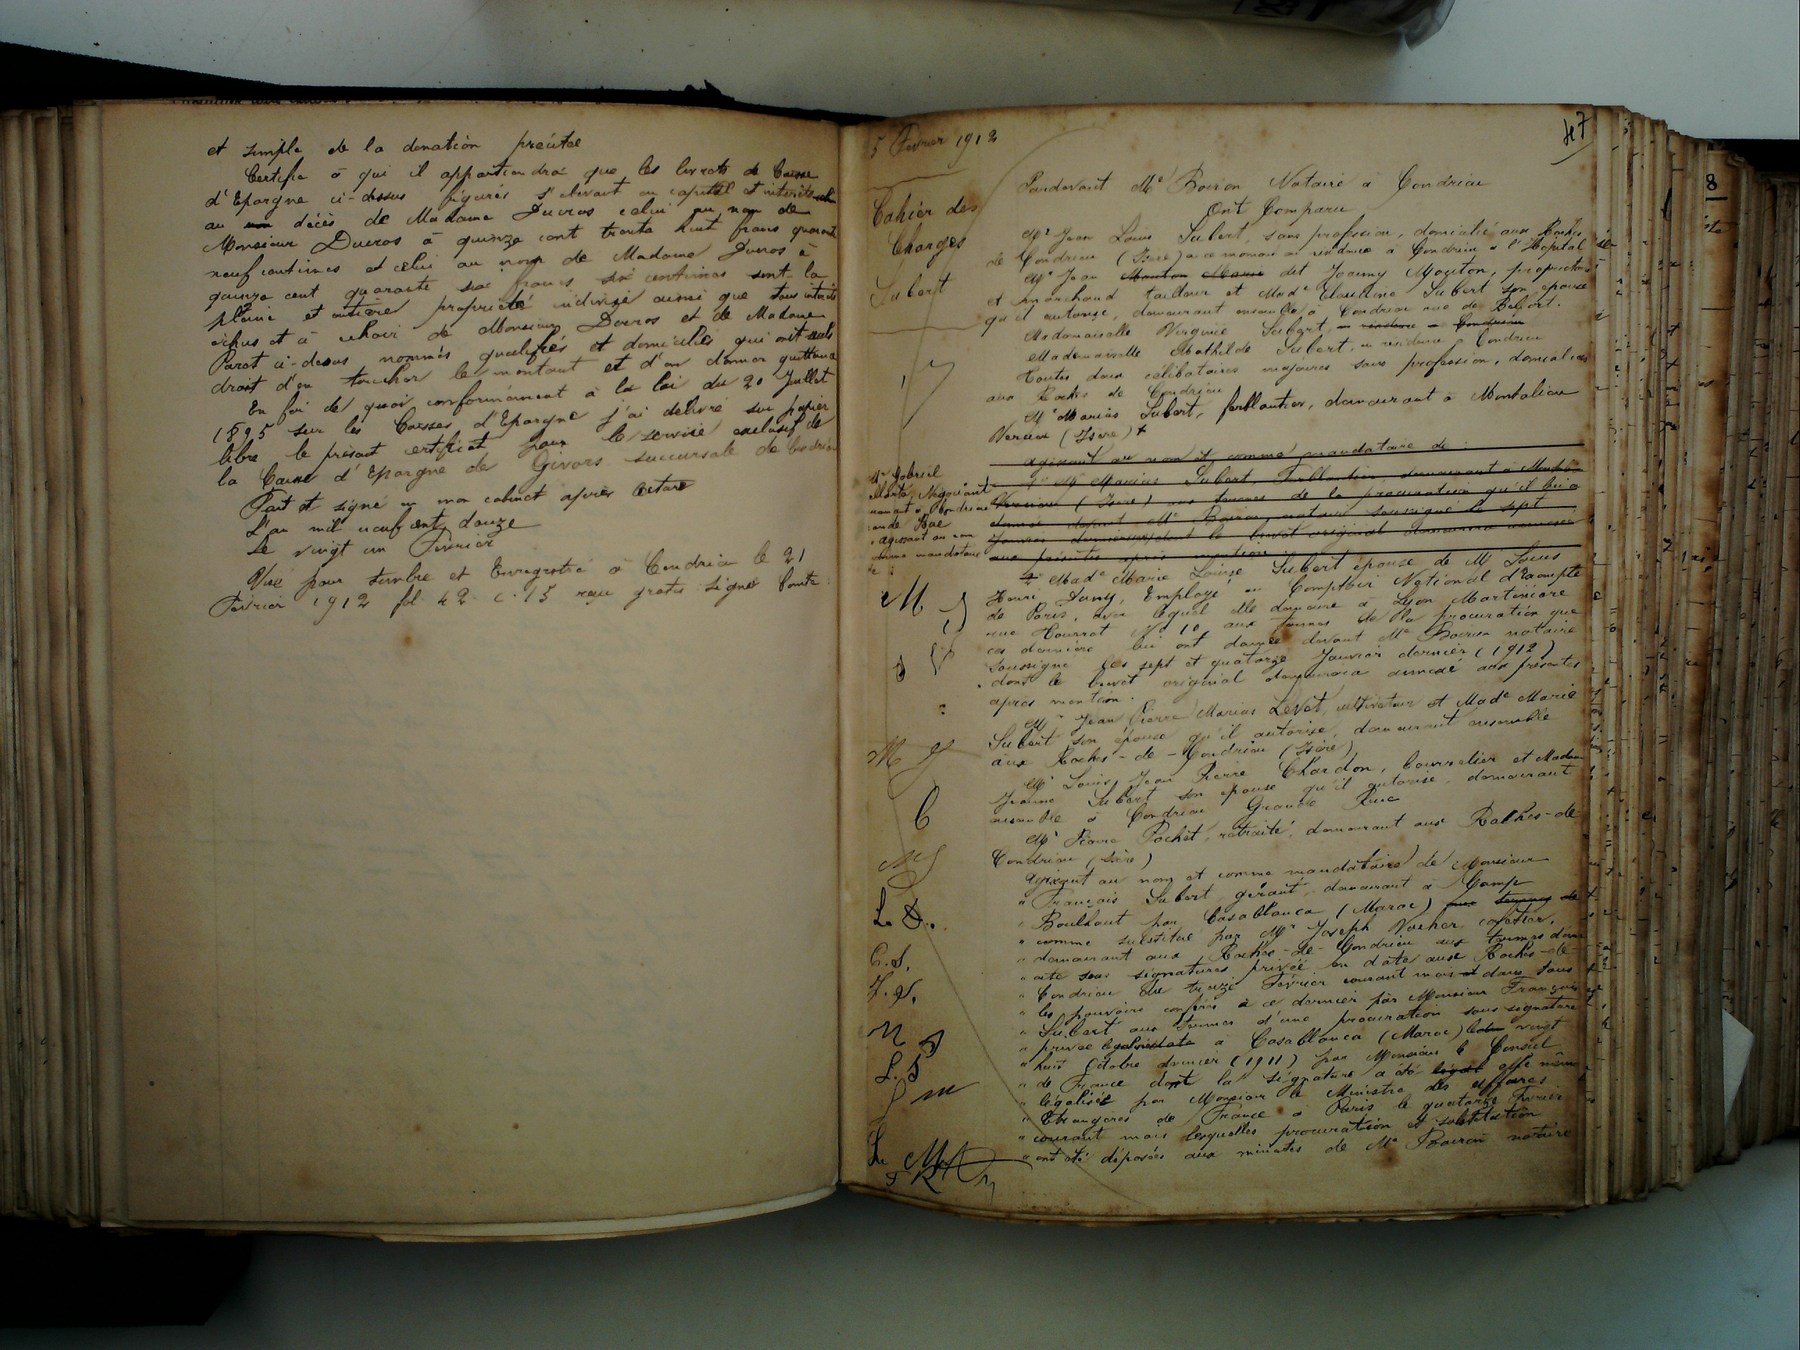 et simple de la donation précitée
Certifie à qui il appartiendra que les livrets de Caisse
d'Epargne ci-dessus figurés s'élevant en capital et intérêts
au décès de Madame Ducros celui au nom de
Monsieur Ducros à quinze cent trente huit francs quarante
neuf centimes et celui au nom de Madame Ducros à
quinze cent quarante six francs six centimes sont la
pleine et entière propriété indivise ainsi que tous intérêts
échus et à échoir de Monsieur Ducros et de Madame
Parot ci-dessus nommés qualifiés et domiciliés qui ont seuls
droit d'en toucher le montant et d'en donner quittance
En foi de quoi conformément à la loi du 20 Juillet
1895 sur les Caisses d'Epargne j'ai délivré sur papier
libre le présent certificat pour le service exclusif de
la Caisse d'Epargne de Givors succursale de Condrieu
Fait et signé en mon cabinet après lecture
L'an mil neuf cent douze
Le vingt un Février
Visé pour timbre et Enregistré à Condrieu le 21
Février 1912 fol. 42 c. 15 reçu gratis signé Conte
47
5 Février 1912
Cahier des
Charges
Subert
Pardevant Me Boiron Notaire à Condrieu
Ont Comparu
Mr Jean Louis Subert, sans profession, domicilié aux Roches
de Condrieu (Isère) en ce moment en résidence à Condrieu à l'Hopital
Mr Jean Mouton Marie dit Joanny Mouton, propriétaire
et marchand tailleur et Made Claudine Subert son épouse
qu'il autorise, demeurant ensemble à Condrieu rue de Belfort.
Mademoiselle Virginie Subert, en résidence à Condrieu
Mademoiselle Mathilde Subert, en résidence à Condrieu
Toutes deux célibataires majeures sans profession, domiciliées
aux Roches de Condrieu
Mr Marius Subert, ferblantier, demeurant à Montalieu
Vercieu (Isère) +
Mr Gabriel
Négociant
à Condrieu
Rue
agissant au nom
comme mandataire
de :
agissant au nom et comme mandataire de :
1° Mr Marius Subert, Ferblantier demeurant à Montalieu
Vercieu (Isère) aux termes de la procuration qu'il lui a
donnée devant Me Boiron notaire soussigné le sept
Janvier dernier dont le brevet original demeurera annexé
aux présentes après mention
2° Made Marie Louise Subert épouse de Mr Louis
Henri Juny, Employé au Comptoir National d'Escompte
de Paris, avec lequel elle demeure à Lyon Martinière
rue Hourrat No 10 aux termes de la procuration que
ces derniers lui ont donnée devant Me Boiron notaire
soussigné les sept et quatorze Janvier dernier (1912)
dont le brevet original demeurera annexé aux présentes
après mention.
Mr Jean Pierre Marius Levet, cultivateur et Made Marie
Subert son épouse qu'il autorise, demeurant ensemble
aux Roches-de-Condrieu (Isère)
Mr Louis Jean Pierre Chardon, bourrelier et Madame
Jeanne Subert son épouse qu'il autorise, demeurant
ensemble à Condrieu Grande Rue
Mr Pierre Pochet, retraité, demeurant aux Roches-de
Condrieu (Isère)
Agissant au nom et comme mandataire de Monsieur
" François Subert gérant demeurant à Camp
" Boulhaut par Casablanca (Maroc) aux termes de
" comme substitué par Mr Joseph Vacher, cafetier,
" demeurant aux Roches-de-Condrieu aux termes d'un
" acte sous signatures privée en date aux Roches-de-
" Condrieu du treize Février courant mois et dans tous
" les pouvoirs conférés à ce dernier par Monsieur François
" Subert aux termes d'une procuration sous signature
" privée à Casablanca (Maroc) le vingt
" huit Octobre dernier (1911) par Monsieur le Consul
" de France dont la signature a été elle même
" légalisée par Monsieur le Ministre des affaires
" Etrangères de France à Paris le quatorze Février
" courant mois lesquelles procuration et substitution
" ont été déposées aux minutes de Me Boiron notaire
M
C
L. D.
C. S.
L. S